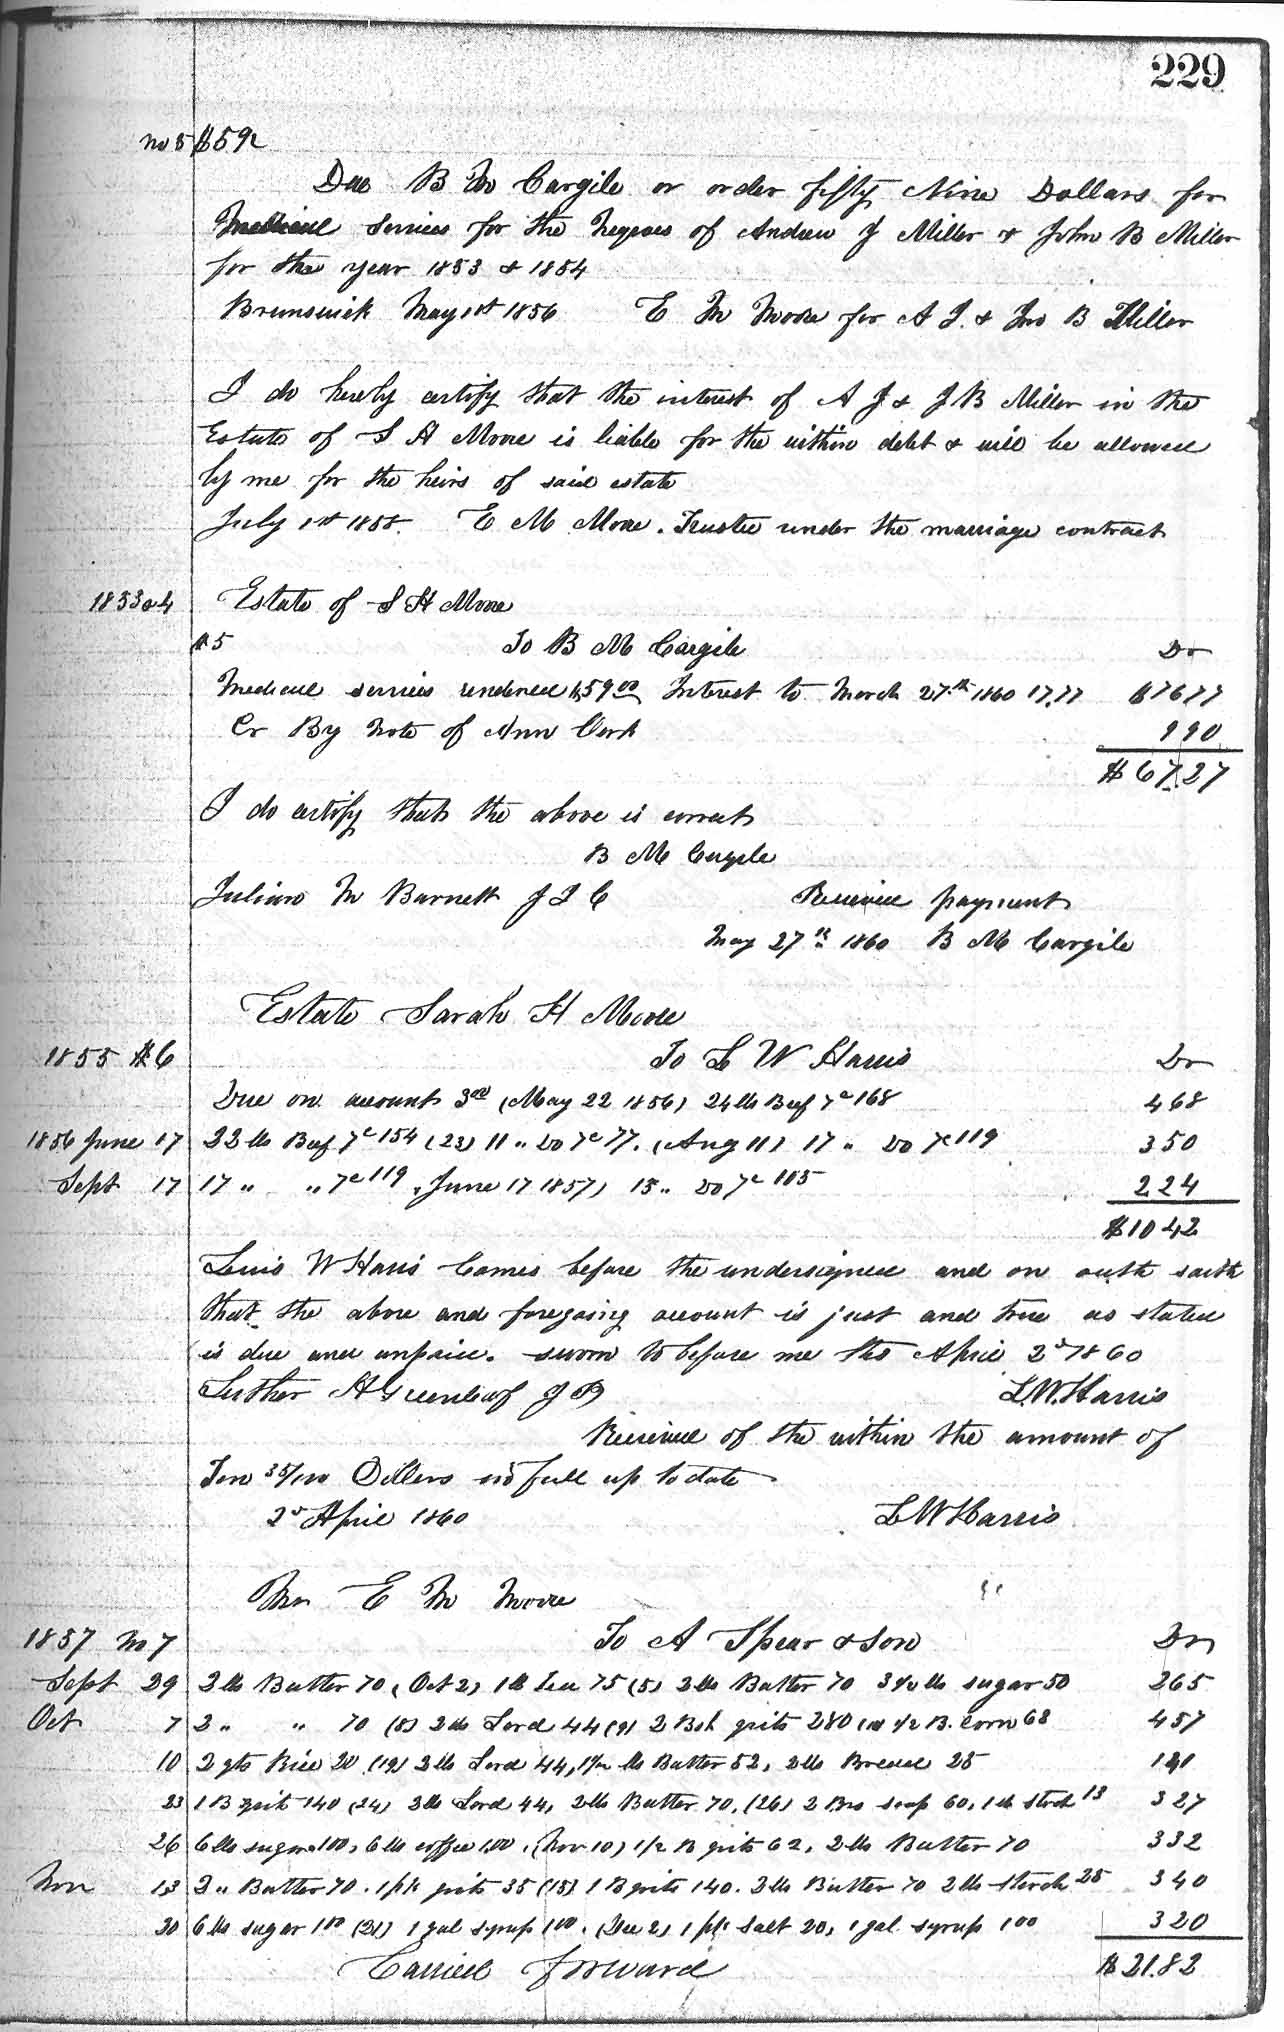 229
no 5 $59
Due B M Cargile or order fifty Nine Dollars for
Medical Services for the Negroes of Andrew J Miller & John B Miller
for the year 1853 & 1854
Brunswick May 1st 1856 E M Moore for A J. & Jno B Miller
I do hereby certify that the interest of A J & J B Miller in the
Estate of S H Moore is liable for the within debt & will be allowed
by me for the heirs of said estate
July 1st 1858. E M Moore. Trustee under the marriage contract
1853 & 4 Estate of S H Moore
#5 To B M Cargile Dr
Medical services rendered $59 00 Interest to March 27th 1860 17.77 $76 77
Cr By Note of Ann 9 90
$67.27
I do certify that the above is correct
B M Cargile
M Barnett J I C Received payment
May 27th 1860 B M Cargile
Estate Sarah H Moore
1855 #6 To L W Harris Dr
Due on account 3rd (May 22 1856) 24 lbs Beef 7c 168 4 68
1856 June 17 22 lbs Beef 7c 154 (23) 11 " do 7c 77. (Aug 11) 17 " do 7c 119 3 50
Sept 17 17 " " 7c 119, June 17 1857) 15 " do 7c 105 2 24
$10 42
Lewis W Harris Comes before the undersigned and on oath saith
that the above and foregoing account is just and true as stated
is due and unpaid. sworn to before me this April 2d 1860
Luther H Greenleaf J P L. W. Harris
Received of the within the amount of
Ten 35/100 Dollers in full up to date
2d April 1860 L W Harris
Mr E M Moore
1857 No 7 To A Spear & Son Dr
Sept 29 2 lbs Butter 70, (Oct 2) 1 lb Tea 75 (5) 2 lbs Butter 70 3 1/2 lbs sugar 50 2 65
Oct 7 2 " " 70 (8) 2 lbs Lard 44 (9) 2 Bsh grits 280 1/2 B. Corn 68 4 57
10 2 qts Rice 20 (19) 2 lbs Lard 44, 1 1/2 lb Butter 52, 2 lbs Bread 25 1 41
23 1 B grits 140 (24) 2 lbs Lard 44, 2 lbs Butter 70, (26) 2 Brs soap 60, 1 lb starch 13 3 27
26 6 lbs sugar 100, 6 lbs coffee 100, (Nov 10) 1/2 B grits 62, 2 lbs Butter 70 3 32
Nov 13 2 " Butter 70. 1 pk grits 35 (15) 1 B grits 140. 2 lbs Butter 70 2 lbs starch 25 3 40
20 6 lbs sugar 100 (21) 1 gal syrup 100. (Dec 2) 1 pk Salt 20, 1 gal. syrup 100 3 20
Carried forward $21.82